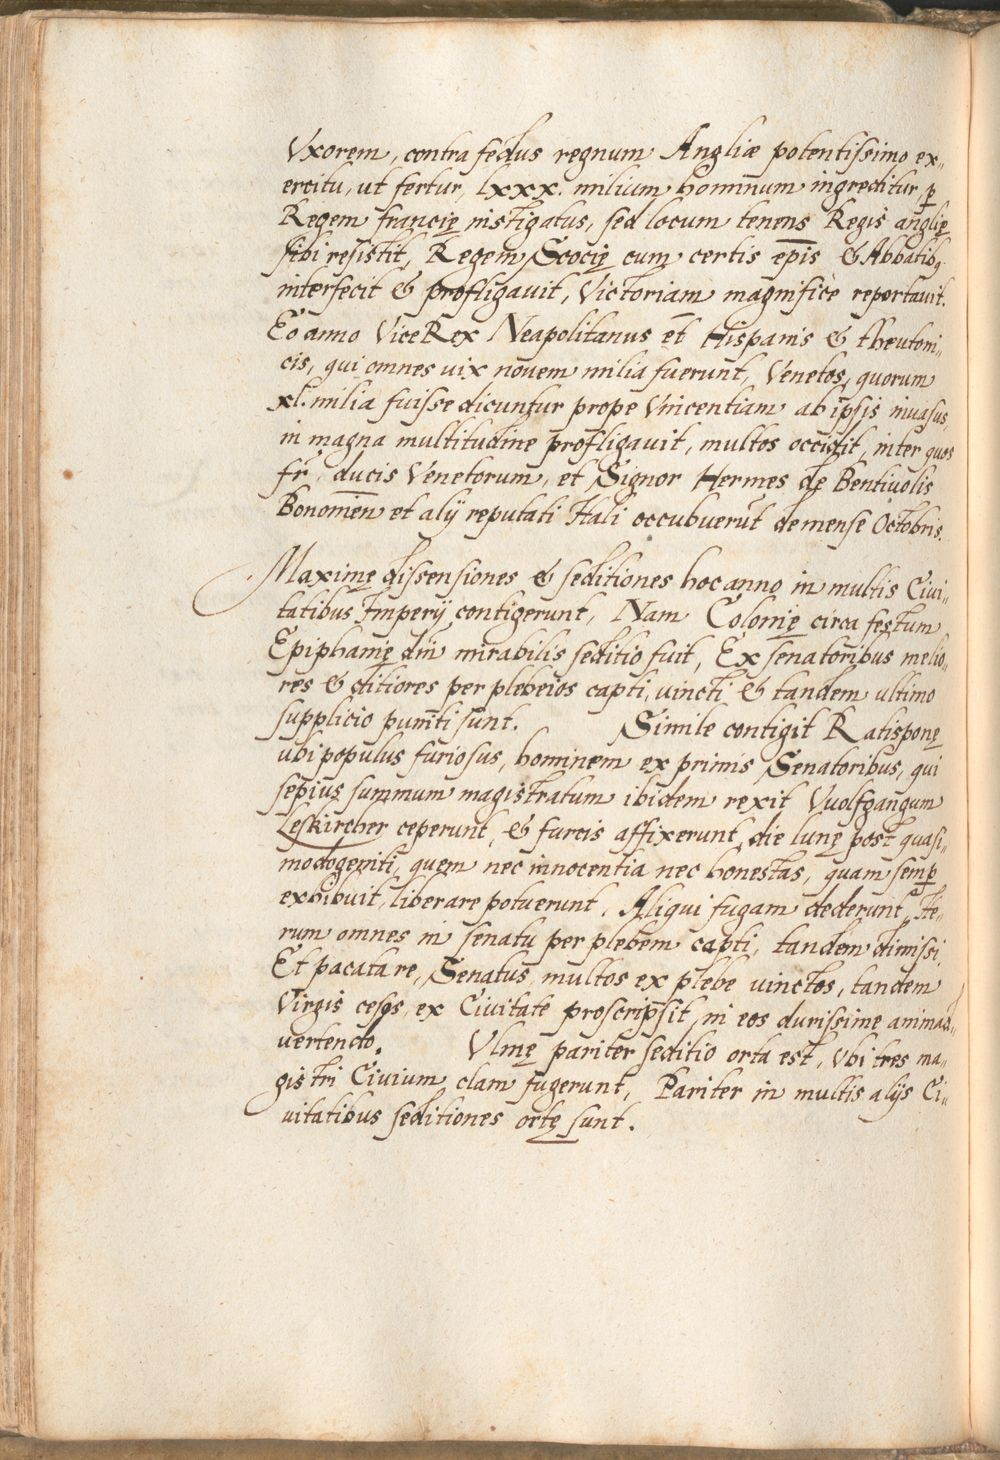 Vxorem, contra fedus regnum Angliæ potentissimo ex„
ercitu, ut fertur, lxxx. milium hominum ingreditur, ꝑ
Regem francię instigatus, sed locum tenens Regis anglię
sibi resistit, Regem Scocię cum certis ep̄is & Abbatibꝫ
interfecit & profligauit, Victoriam magnifice reportauit.
Eo anno ViceRex Neapolitanus et Hispanis & theutoni„
cis, qui omnes uix nouem milia fuerunt, Venetos, quorum
xl. milia fuisse dicuntur prope Vincentiam ab ipsis inuasus,
in magna multitudine profligauit, multos occidit, inter quos
fr̄. ducis Venetorum, et Signor Hermes de Bentiuolis
Bonomien̄ et alij reputati Itali occubuerūt de mense Octobris.
Maximę dissensiones & seditiones hoc anno in multis Ciui„
tatibus Imperij contigerunt, Nam Colonię circa festum
Epiphanię dn̄i mirabilis seditio fuit, Ex senatoribus melio„
res & ditiores per plebeios capti, uincti & tandem ultimo
supplicio puniti sunt. Simile contigit Ratisponę
ubi populus furiosus, hominem ex primis Senatoribus, qui
sepius summum magistratum ibidem rexit Vuolfgangum
Leskircher ceperunt, & furcis affixerunt, die lunę post quasi„
modogeniti, quem nec innocentia nec honestas, quam semꝑ
exhibuit, liberare potuerunt. Aliqui fugam dederunt, Ite„
rum omnes in senatu per plebem capti, tandem dimissi.
Et pacata re, Senatus multos ex plebe uinctos, tandem
Virgis cesos, ex Ciuitate proscripsit, in eos durissime animad„
uertendo. Vlmę pariter seditio orta est, Vbi tres ma„
gistri Ciuium clam fugerunt, Pariter in multis alijs Ci„
uitatibus seditiones ortę sunt.